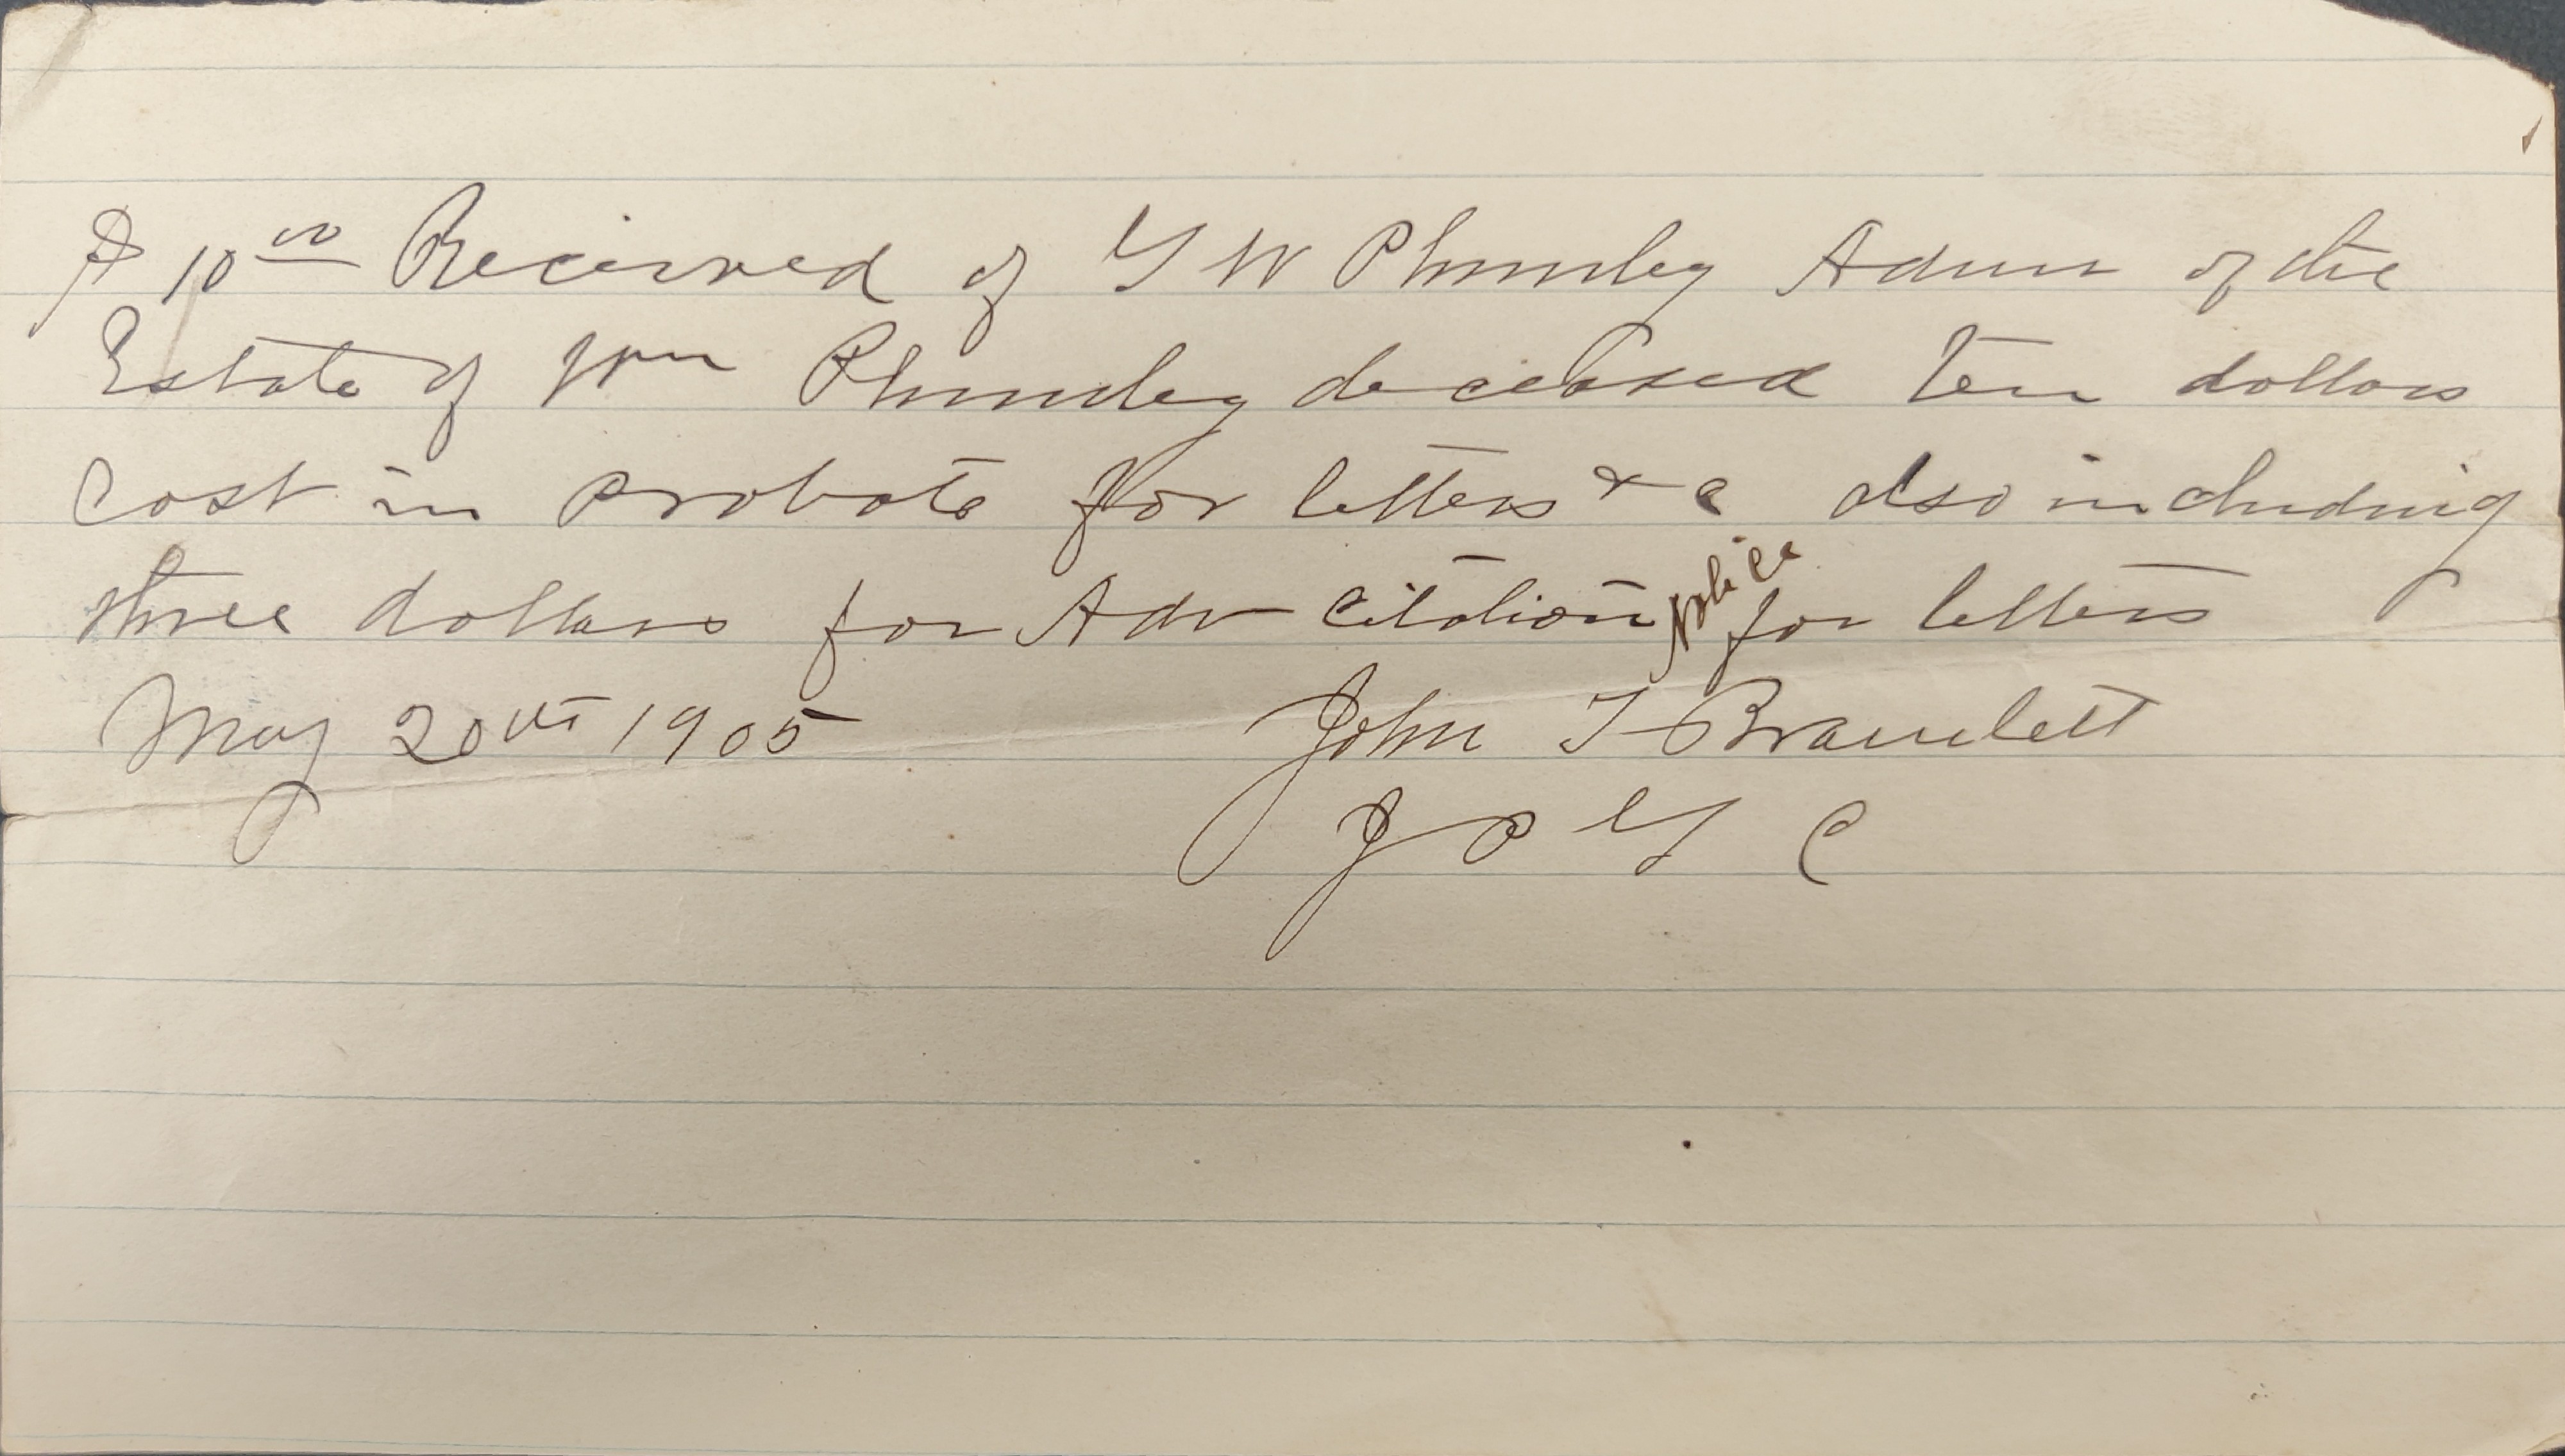 $10 00 Received of G W Plumley Admr of the
Estate of Wm Plumley deceased Ten dollars
Cost in probate for letters & c also including
three dollars for Adv Citation Notice for letters
May 20th 1905 John T Bramlett
J P G C